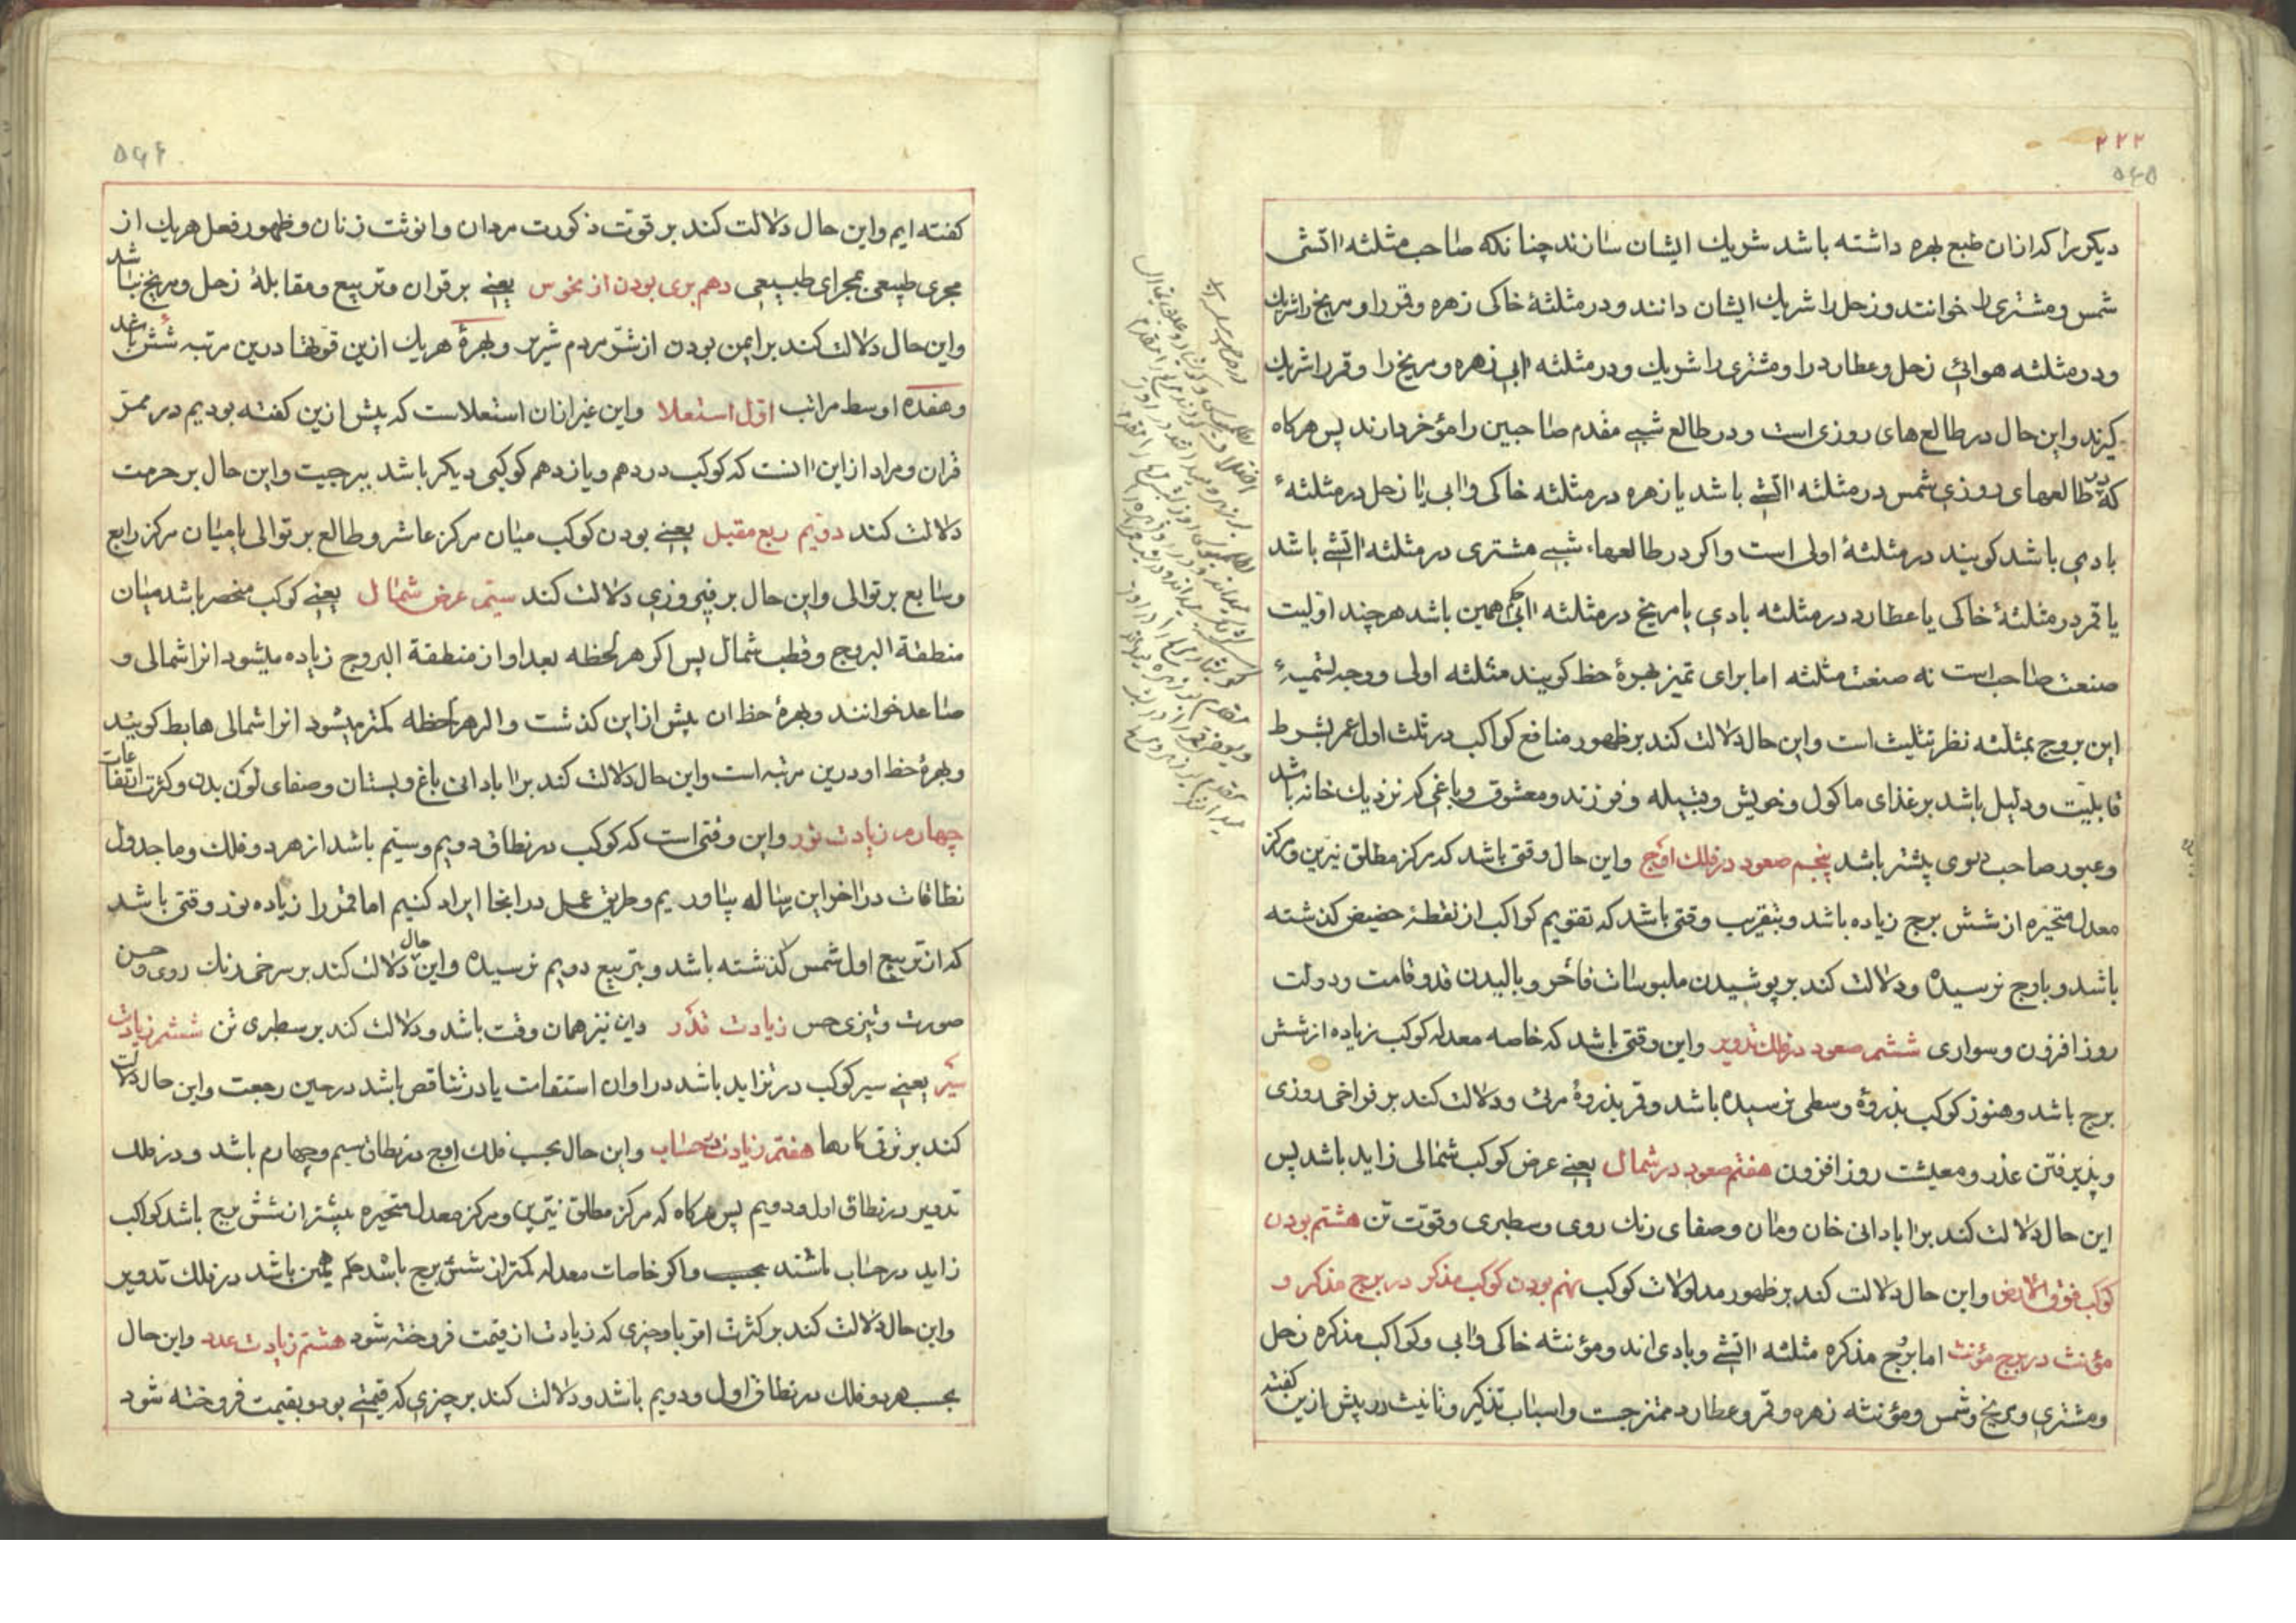 ۲۲۲
۵۶۵
دیکریرا که ازان طبع بهره داشته باشد شریك ایشان سازند چنانکه صاحب مثلثه اتشی
شمس و مشتری را خوانند و زحل را شریك ایشان دانند و در مثلثهٔ خاکی زهره و قمر را و مریخ را شریك
و در مثلثه هوائی زحل و عطارد را و مشتری را شریك و در مثلثه ابی زهره و مریخ را و قمر را شریك
کیرند و این حال در طالع های روزی است و در طالع شبی مقدم صاحبین را مؤخر دارند پس هر کاه
که در طالعهای روزی شمس در مثلثه اتشی باشد یا زهره در مثلثه خاکی و ابی یا زحل در مثلثهٔ
بادی باشد کویند در مثلثهٔ اولی است و اکر در طالعهاء شبی مشتری در مثلثه اتشی باشد
یا قمر در مثلثهٔ خاکی یا عطارد در مثلثه بادی یا مریخ در مثلثه ابی حکم همین باشد هر چند اولیت
صنعت صاحب است نه صنعت مثلثه اما برای تمیز بهرهٔ حظ کویند مثلثه اولی و وجه تسمیهٔ
این بروج بمثلثه نظر تثلیث است و این حال دلالت کند بر ظهور منافع کواکب در ثلث اول عمر بشرط
قابلیّت و دلیل باشد بر غذای ماکول و خویش و قبیله و فرزند و معشوق و باغی که نزدیك خانه باشد
و عبور صاحب دوی پیشتر باشد پنجم صعود در فلك اوج و این حال وقتی باشد که مرکز مطلق نیرین و مرکز
معدل متحیره از شش برج زیاده باشد و بتقریب وقتی باشد که تقویم کواکب از نقطهٔ حضیض کذشته
باشد و باوج نرسیده و دلالت کند بر پوشیدن ملبوسات فاخر و بالیدن قد و قامت و دولت
روز افزون و سواری ششم صعود در فلك تدویر و این وقتی باشد که خاصه معدله کوکب زیاده از شش
برج باشد و هنوز کوکب بذروهٔ وسطی نرسیده باشد و قمر بذروهٔ مرئی و دلالت کند بر فراخی روزی
و پذیرفتن عذر و معیشت روز افزون هفتم صعود در شمال یعنی عرض کوکب شمالی زاید باشد پس
این حال دلالت کند بر ابادانی خان و مان و صفای رنك روی و سطبری و قوّت تن هشتم بودن
کوکب فوق الارض و این حال دلالت کند بر ظهور مدلولات کوکب نهم بودن کوکب مذکر در برج مذکر و
مؤنث در برج مؤنث اما برج مذکره مثلثه اتشی و بادی اند و مؤنثه خاکی و ابی و کواکب مذکره زحل
و مشتری و مریخ و شمس و مؤنثه زهره و قمر و عطارد ممتزجست و اسباب تذکیر و تانیث در پیش ازین کفته
۵۶۶
کفته ایم و این حال دلالت کند بر قوّت ذکورت مردان و انوثت زنان و ظهور فعل هر یك از
مجری طبیعی بمجرای طبیعی دهم بری بودن از نحوس یعنی بر قران و تربیع و مقابلهٔ زحل و مریخ نباشد
و این حال دلالت کند بر ایمن بودن از شرّ مردم شریر و بهرهٔ هر یك ازین قوّتها درین مرتبه شش باشد
و هفده اوسط مراتب اوّل استعلا و این غیر ازان استعلاست که پیش ازین کفته بودیم در ممرّ
قران و مراد از این انست که کوکب در دهم و یازدهم کوکبی دیکر باشد ببرجیت و این حال بر حرمت
دلالت کند دویم ربع مقبل یعنی بودن کوکب میان مرکز عاشر و طالع بر توالی یا میان مرکز رابع
و سابع بر توالی و این حال بر فیروزی دلالت کند سیّم عرض شمال یعنی کوکب منحصر باشد میان
منطقة البروج و قطب شمال پس اکر هر لحظه بعد او از منطقة البروج زیاده میشود انرا شمالی و
صاعد خوانند و بهرهٔ حظ ان پیش ازاین کذشت و اکر هر لحظه کمتر میشود انرا شمالی هابط کویند
و بهرهٔ حظ او درین مرتبه است و این حال دلالت کند بر ابادانی باغ و بستان و صفای لون بدن و کثرت انتفاعات
چهارم زیادت نور و این وقتی است که کوکب در نطاق دویم و سیّم باشد از هر دو فلك و ما جدول
نطاقات در اخر این رساله بیاوریم و طریق عمل در انجا ایراد کنیم اما قمر را زیاده نور وقتی باشد
که از تربیع اول شمس کذشته باشد و بتربیع دویم نرسیده و این حال دلالت کند بر سرخی رنك روی و حسن
صورت و تیزی حس زیادت قدر و این نیز همان وقت باشد و دلالت کند بر سطبری تن ششم زیادت
سیر یعنی سیر کوکب در تزاید باشد در اوان استقامت یا در تناقص باشد در حین رجعت و این حال دلالت
کند بر ترقی کارها هفتم زیادت در حساب و این حال بحسب فلك اوج در نطاق سیم و چهارم باشد و در فلك
تدویر در نطاق اول و دویم پس هر کاه که مرکز مطلق نیّرین و مرکز معدل متحیره بیشتر از شش برج باشد کواکب
زاید در حساب باشند و اکر خاصات معدله کمتر از شش برج باشد حکم همین باشد در فلك تدویر
و این حال دلالت کند بر کثرت اقربا و چیزی که زیادت از قیمت فروخته شود هشتم زیادت عدد و این حال
بحسب هر دو فلك در نطاق اول و دویم باشد و دلالت کند بر چیزی که قیمتی بود و بقیمت فروخته شود